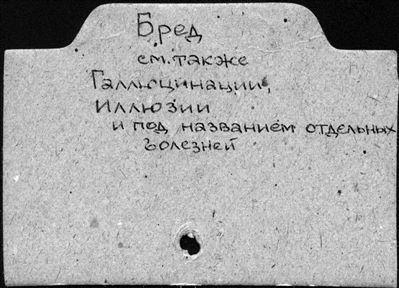 Бред
см. также
Галлюцинации,
Иллюзии
и под названием отдельных
болезней